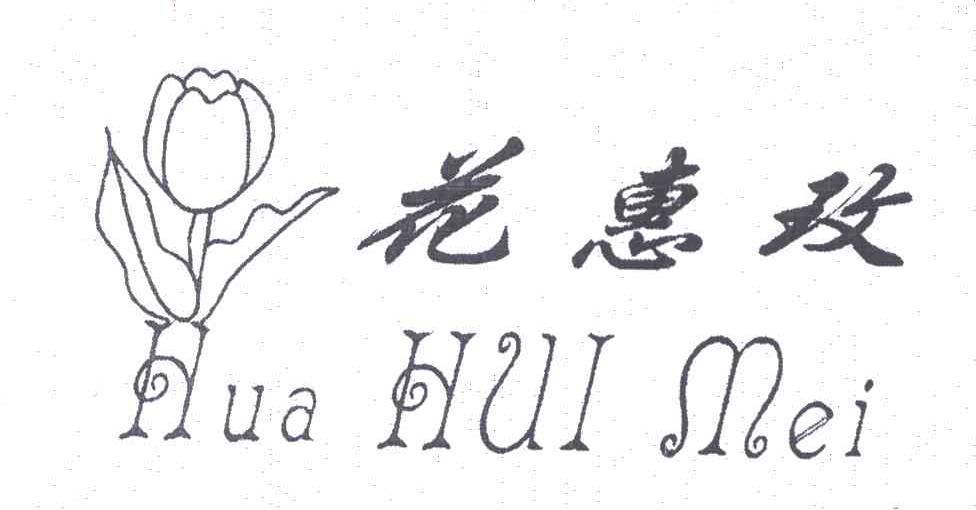 花惠玫
Hua HUI Mei